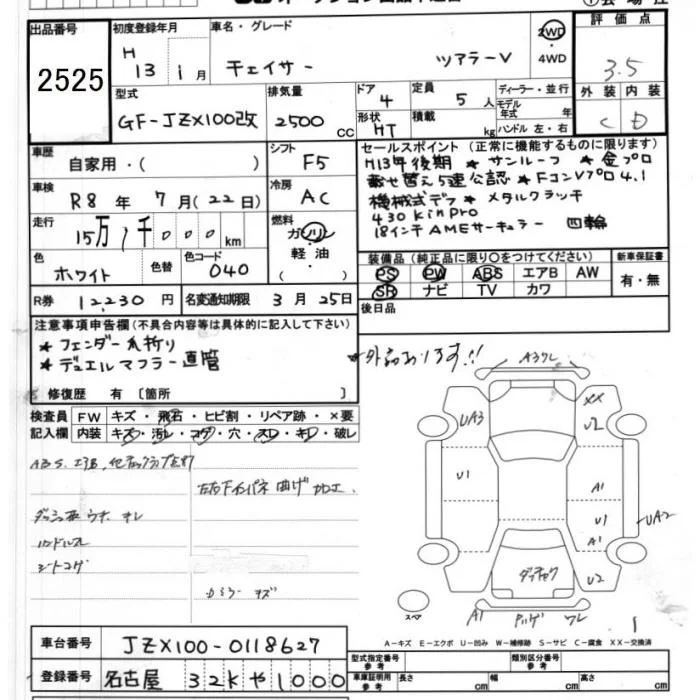 出品番号
2525
初度登録年月
H 13 1 月
車名・グレード
チェイサー ツアラーV
2WD
・
4WD
評価点
3.5
外装 内装
C D
型式
GF-JZX100改
排気量
2500 CC
ドア
4
定員
5 人
形状
HT
積載
kg
ディーラー・並行
モデル年式 年
ハンドル 左・右
車歴
自家用・( )
シフト
F5
車検
R8 年 7 月 (22 日)
冷房
AC
走行
15万1千000 km
燃料
ガソリン
軽油
( )
色
ホワイト
色替
色コード
040
R券
12,230 円
名変通知期限
3 月 25日
セールスポイント(正常に機能するものに限ります)
H13年後期 * サンルーフ * 金プロ
載せ替え5速公認 * FコンVプロ4.1
機械式デフ * メタルクラッチ
430 kinpro
18インチAMEサーキュラー 四輪
装備品(純正品に限り○をつけてください)
PS PW ABS エアB AW
SR ナビ TV カワ
新車保証書
有・無
後日品
注意事項申告欄(不具合内容等は具体的に記入して下さい)
* フェンダー爪折り
* デュエルマフラー直管
*外品あります!!
修復歴 有 〔箇所 〕
検査員記入欄
FW キズ・飛石・ヒビ割・リペア跡・×要
内装 キズ・汚レ・コゲ・穴・スレ・キレ・破レ
ハンドルスレ
シートコゲ
A3ワレ
UA3
XX
U2
U1
A1
U1
A1
UA2
U2
スペア
A1
ワレ
A－キズ E－エクボ U－凹み W－補修跡 S－サビ C－腐食 XX－交換済
車台番号
JZX100-0118627
登録番号
名古屋 32Kや1000
型式指定番号
参考
類別区分番号
参考
車庫証明用
参考
長さ cm
幅 cm
高さ cm